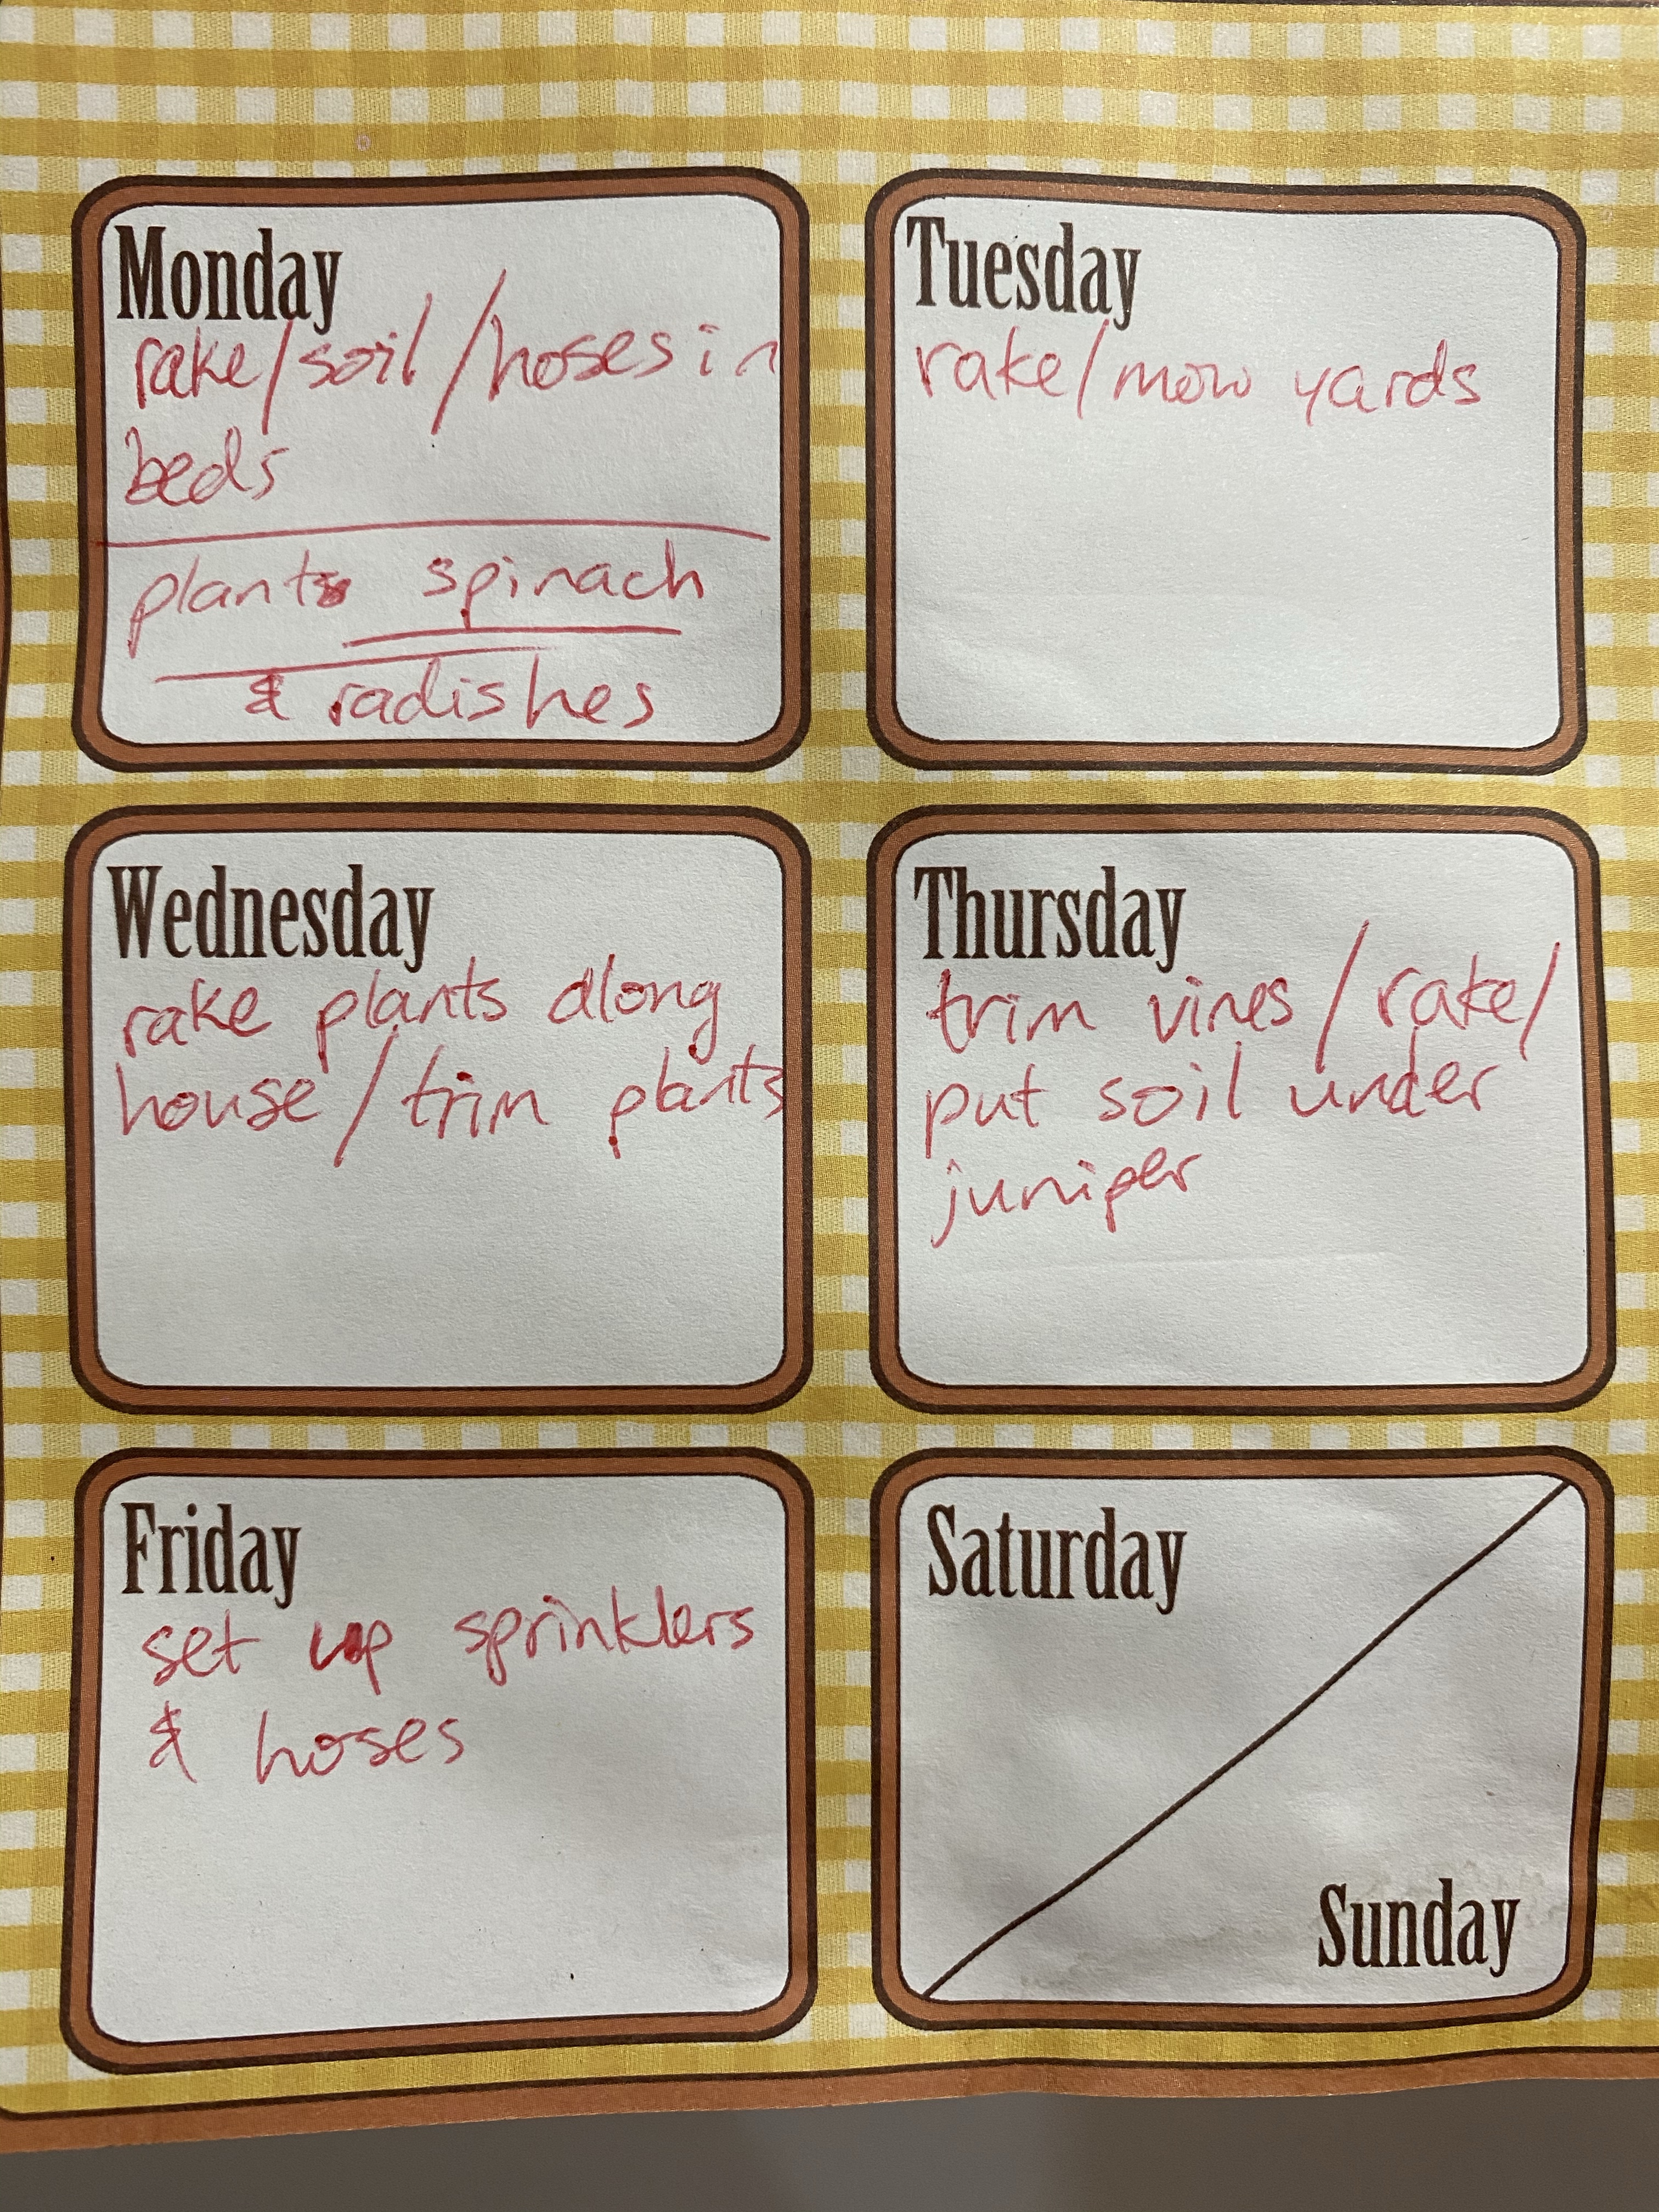 Monday
rake/soil/hoses in
beds
plants spinach
& radishes
Tuesday
rake/mow yards
Wednesday
rake plants along
house/trim plants
Thursday
trim vines/rake/
put soil under
juniper
Friday
set up sprinklers
& hoses
Saturday
Sunday